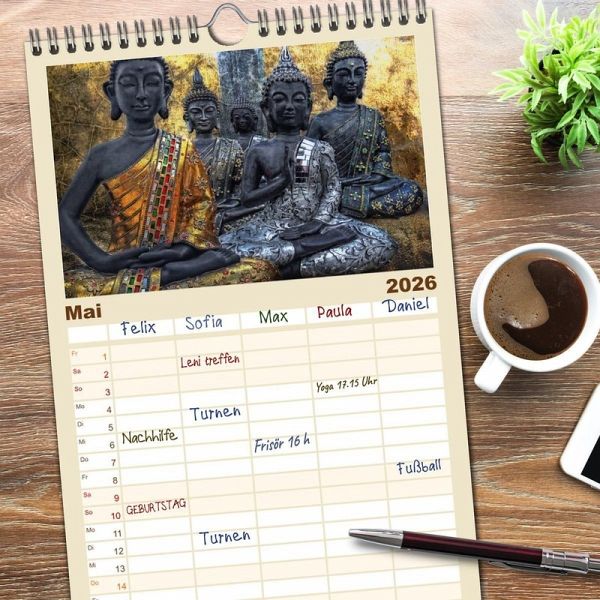 Mai 2026
Felix Sofia Max Paula Daniel
Fr 1
Sa 2 Leni treffen
So 3 Yoga 17.15 Uhr
Mo 4
Di 5 Turnen
Mi 6 Nachhilfe Frisör 16 h
Do 7
Fr 8 Fußball
Sa 9
So 10 GEBURTSTAG
Mo 11
Di 12 Turnen
Mi 13
Do 14